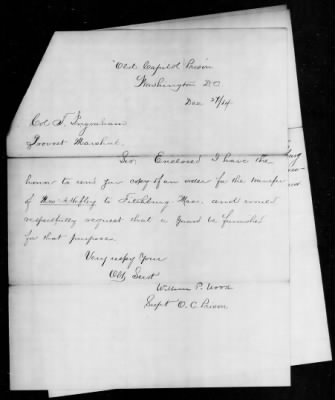 "Old Capitol Prison
Washington D.C
Dec 27/64
Col T. Ingraham
Provost Marshal.
Sir, Enclosed I have the
honor to send you copy of an order for the transfer
of to Fitchburg Mass. and would
respectfully request that a Guard be furnished
for that purpose.
Very respy Your
Obt Servt
William P. Wood
Supt O. C. Prison